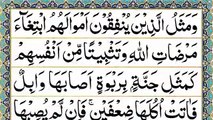 وَمَثَلُ الَّذِيْنَ يُنْفِقُوْنَ اَمْوَالَهُمُ ابْتِغَآءَ
مَرْضَاتِ اللّٰهِ وَتَثْبِيْتًا مِّنْ اَنْفُسِهِمْ
كَمَثَلِ جَنَّةٍۭ بِرَبْوَةٍ اَصَابَهَا وَابِلٌ
فَاٰتَتْ اُكُلَهَا ضِعْفَيْنِ ۚ فَاِنْ لَّمْ يُصِبْهَا